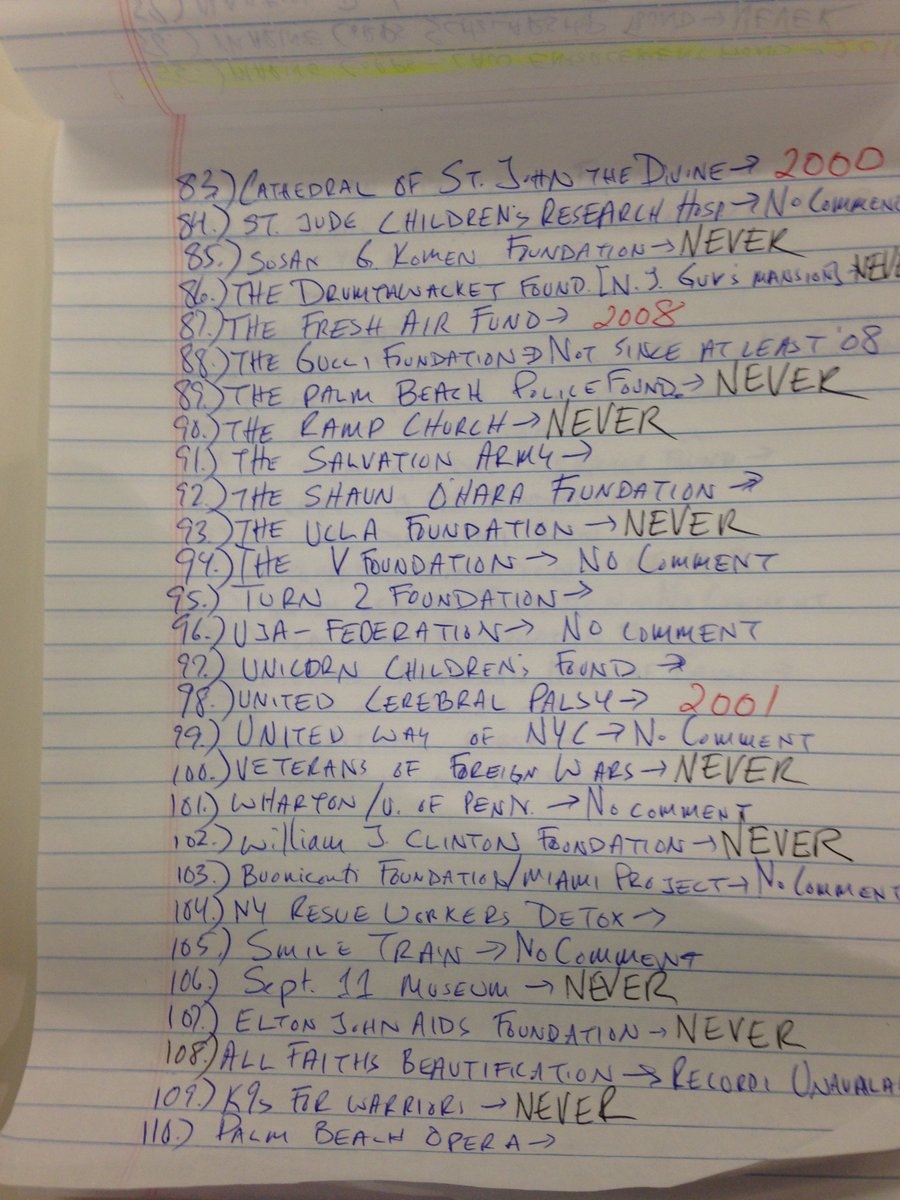 MARINE CORPS SCHOLARSHIP FOUND → NEVER
MARINE CORPS - LAW ENFORCEMENT FOUND
83.) CATHEDRAL OF ST. JOHN THE DIVINE → 2000
84.) ST. JUDE CHILDREN'S RESEARCH HOSP → NO COMMENT
85.) SUSAN G. KOMEN FOUNDATION → NEVER
86.) THE DRUMTHWACKET FOUND [N.J. GUV'S MANSION] → NEVE
87.) THE FRESH AIR FUND → 2008
88.) THE GUCCI FOUNDATION → NOT SINCE AT LEAST '08
89.) THE PALM BEACH POLICE FOUND. → NEVER
90.) THE RAMP CHURCH → NEVER
91.) THE SALVATION ARMY →
92.) THE SHAUN O'HARA FOUNDATION →
93.) THE UCLA FOUNDATION → NEVER
94.) THE V FOUNDATION → NO COMMENT
95.) TURN 2 FOUNDATION →
96.) UJA - FEDERATION → NO COMMENT
97.) UNICORN CHILDREN'S FOUND →
98.) UNITED CEREBRAL PALSY → 2001
99.) UNITED WAY OF NYC → NO COMMENT
100.) VETERANS OF FOREIGN WARS → NEVER
101.) WHARTON/U. OF PENN. → NO COMMENT
102.) William J. CLINTON FOUNDATION → NEVER
103.) Buoniconti FOUNDATION/MIAMI PROJECT → NO COMMENT
104.) NY RESUE WORKERS DETOX →
105.) SMILE TRAIN → NO COMMENT
106.) Sept. 11 MUSEUM → NEVER
107.) ELTON JOHN AIDS FOUNDATION → NEVER
108.) ALL FAITHS BEAUTIFICATION → RECORDS UNAVALA
109.) K9s FOR WARRIORS → NEVER
110.) PALM BEACH OPERA →